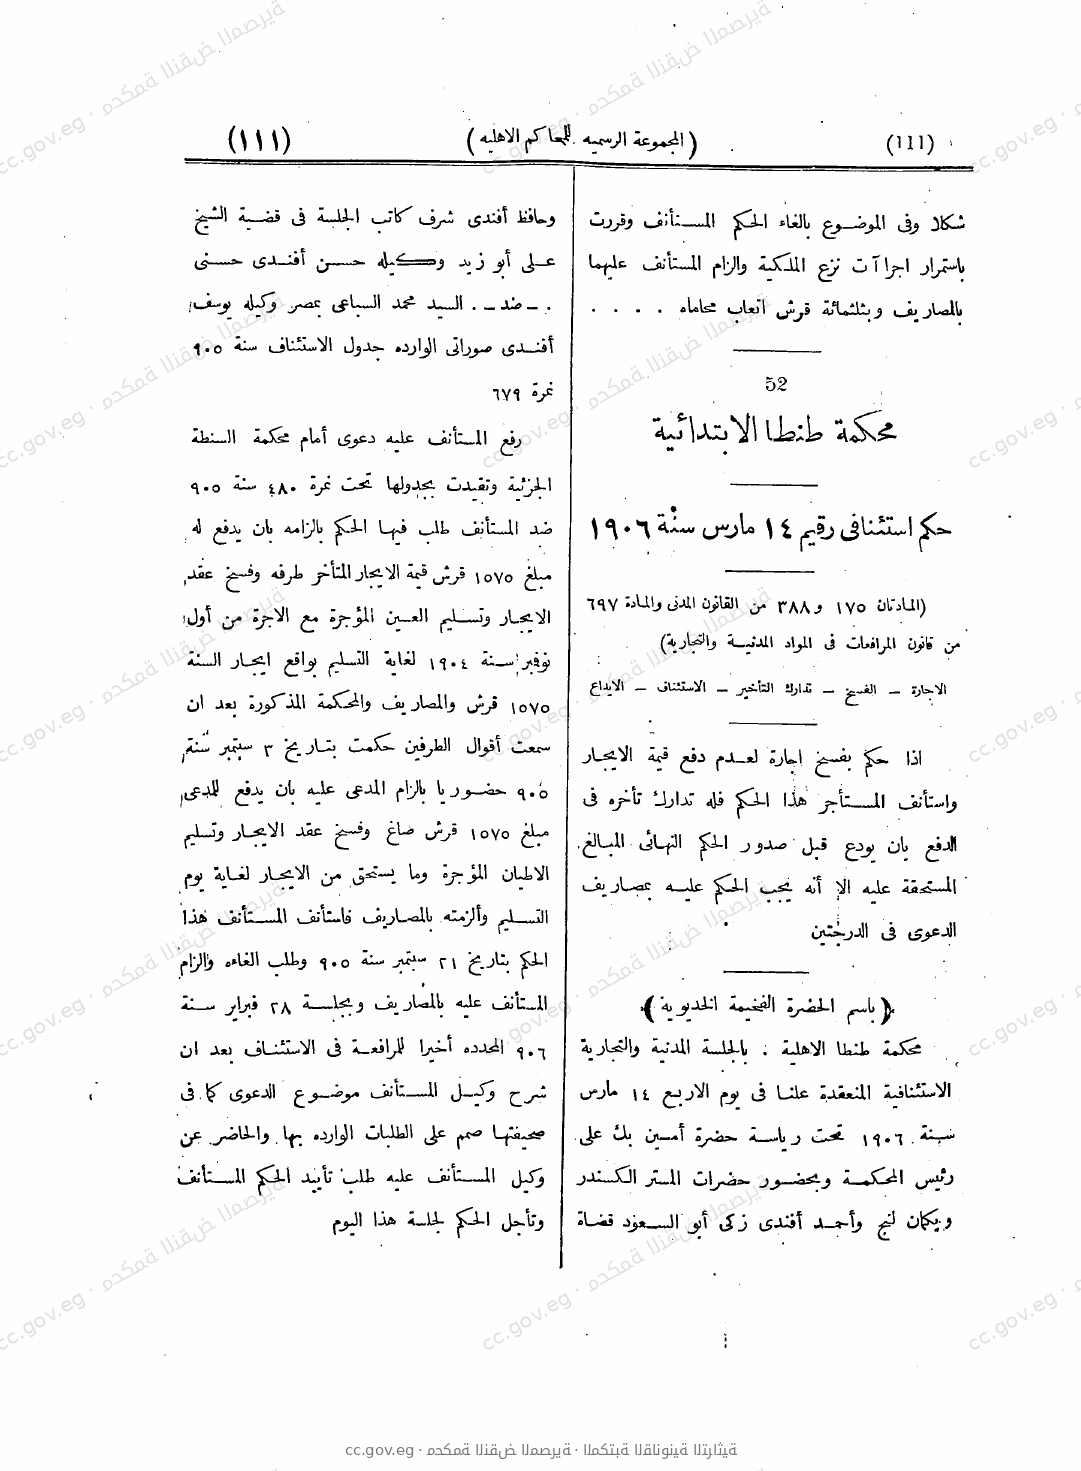 (111) (المجموعة الرسميه للمحاكم الاهليه) (١١١)
شكلا وفى الموضوع بالغاء الحكم المستأنف وقررت
باستمرار اجراآت نزع الملكية والزام المستأنف عليهما
بالمصاريف وبثلثمائة قرش اتعاب محاماه . . . .
52
محكمة طنطا الابتدائية
حكم استئنافى رقيم ١٤ مارس سنة ١٩٠٦
(المادتان ١٧٥ و٣٨٨ من القانون المدنى والمادة ٦٩٧
من قانون المرافعات فى المواد المدنية والتجارية)
الاجارة – الفسخ – تدارك التأخير – الاستئناف – الايداع
اذا حكم بفسخ اجارة لعدم دفع قيمة الايجار
واستأنف المستأجر هذا الحكم فله تدارك تأخره فى
الدفع بان يودع قبل صدور الحكم النهائى المبالغ
المستحقة عليه الا أنه يجب الحكم عليه بمصاريف
الدعوى فى الدرجتين
(باسم الحضرة الفخيمة الخديوية)
محكمة طنطا الاهلية . بالجلسة المدنية والتجارية
الاستئنافية المنعقدة علنا فى يوم الاربع ١٤ مارس
سنة ١٩٠٦ تحت رياسة حضرة أمين بك على
رئيس المحكمة وبحضور حضرات المستر الكسندر
ويكمان لنج وأحمد أفندى زكى أبو السعود قضاة
وحافظ أفندى شرف كاتب الجلسة فى قضية الشيخ
على أبو زيد وكيله حسن أفندى حسنى
. – ضد – . السيد محمد السباعى بمصر وكيله يوسف
أفندى صوراتى الوارده جدول الاستئناف سنة ٩٠٥
نمرة ٦٧٩
رفع المستأنف عليه دعوى أمام محكمة السنطة
الجزئية وتقيدت بجدولها تحت نمرة ٤٨٠ سنة ٩٠٥
ضد المستأنف طلب فيها الحكم بالزامه بان يدفع له
مبلغ ١٥٧٥ قرش قيمة الايجار المتأخر طرفه وفسخ عقد
الايجار وتسليم العين المؤجرة مع الاجرة من أول
نوفمبر سنة ١٩٠٤ لغاية التسليم بواقع ايجار السنة
١٥٧٥ قرش والمصاريف والمحكمة المذكورة بعد ان
سمعت أقوال الطرفين حكمت بتاريخ ٣ سبتمبر سنة
٩٠٥ حضوريا بالزام المدعى عليه بان يدفع للمدعى
مبلغ ١٥٧٥ قرش صاغ وفسخ عقد الايجار وتسليم
الاطيان المؤجرة وما يستحق من الايجار لغاية يوم
التسليم وألزمته بالمصاريف فاستأنف المستأنف هذا
الحكم بتاريخ ٢١ سبتمبر سنة ٩٠٥ وطلب الغاءه والزام
المستأنف عليه بالمصاريف وبجلسة ٢٨ فبراير سنة
٩٠٦ المحدده أخيرا للمرافعة فى الاستئناف بعد ان
شرح وكيل المستأنف موضوع الدعوى كما فى
صحيفتها صمم على الطلبات الوارده بها والحاضر عن
وكيل المستأنف عليه طلب تأييد الحكم المستأنف
وتأجل الحكم لجلسة هذا اليوم
cc.gov.eg · محكمة النقض المصرية · المكتبة القانونية التراثية